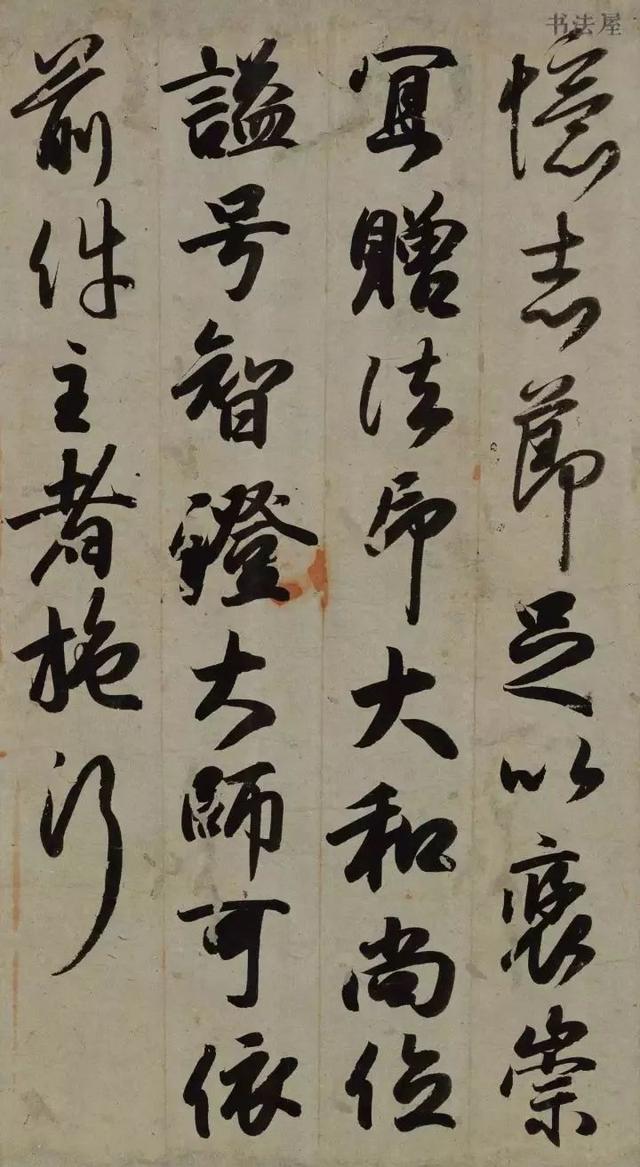 书法屋
憶志節足以褒崇
冝贈法印大和尚位
謚号智證大師可依
前件主者施行